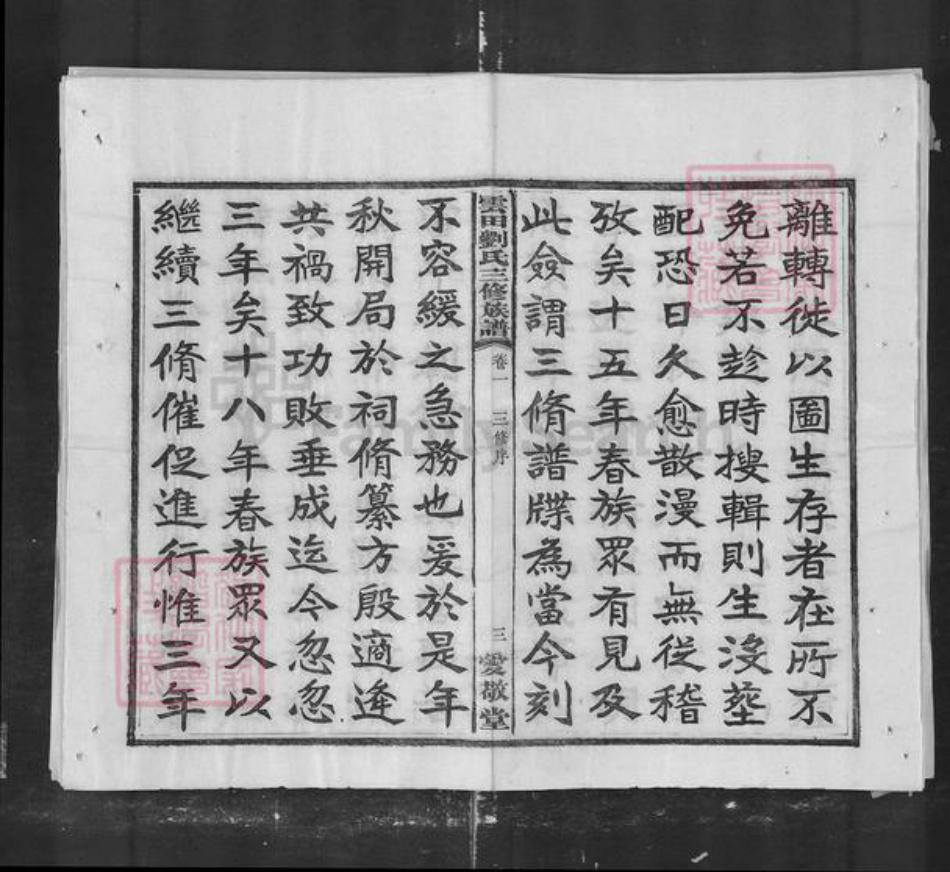 離轉徙以圖生存者在所不
免若不趁時搜輯則生沒塟
配恐日久愈散漫而無從稽
攷矣十五年春族眾有見及
此僉謂三脩譜牒為當今刻
雲田劉氏三修族譜 卷一 三修序 三 愛敬堂
不容緩之急務也爰於是年
秋開局於祠脩纂方殷適逄
共禍致功敗垂成迄今忽忽
三年矣十八年春族眾又以
繼續三脩催促進行惟三年